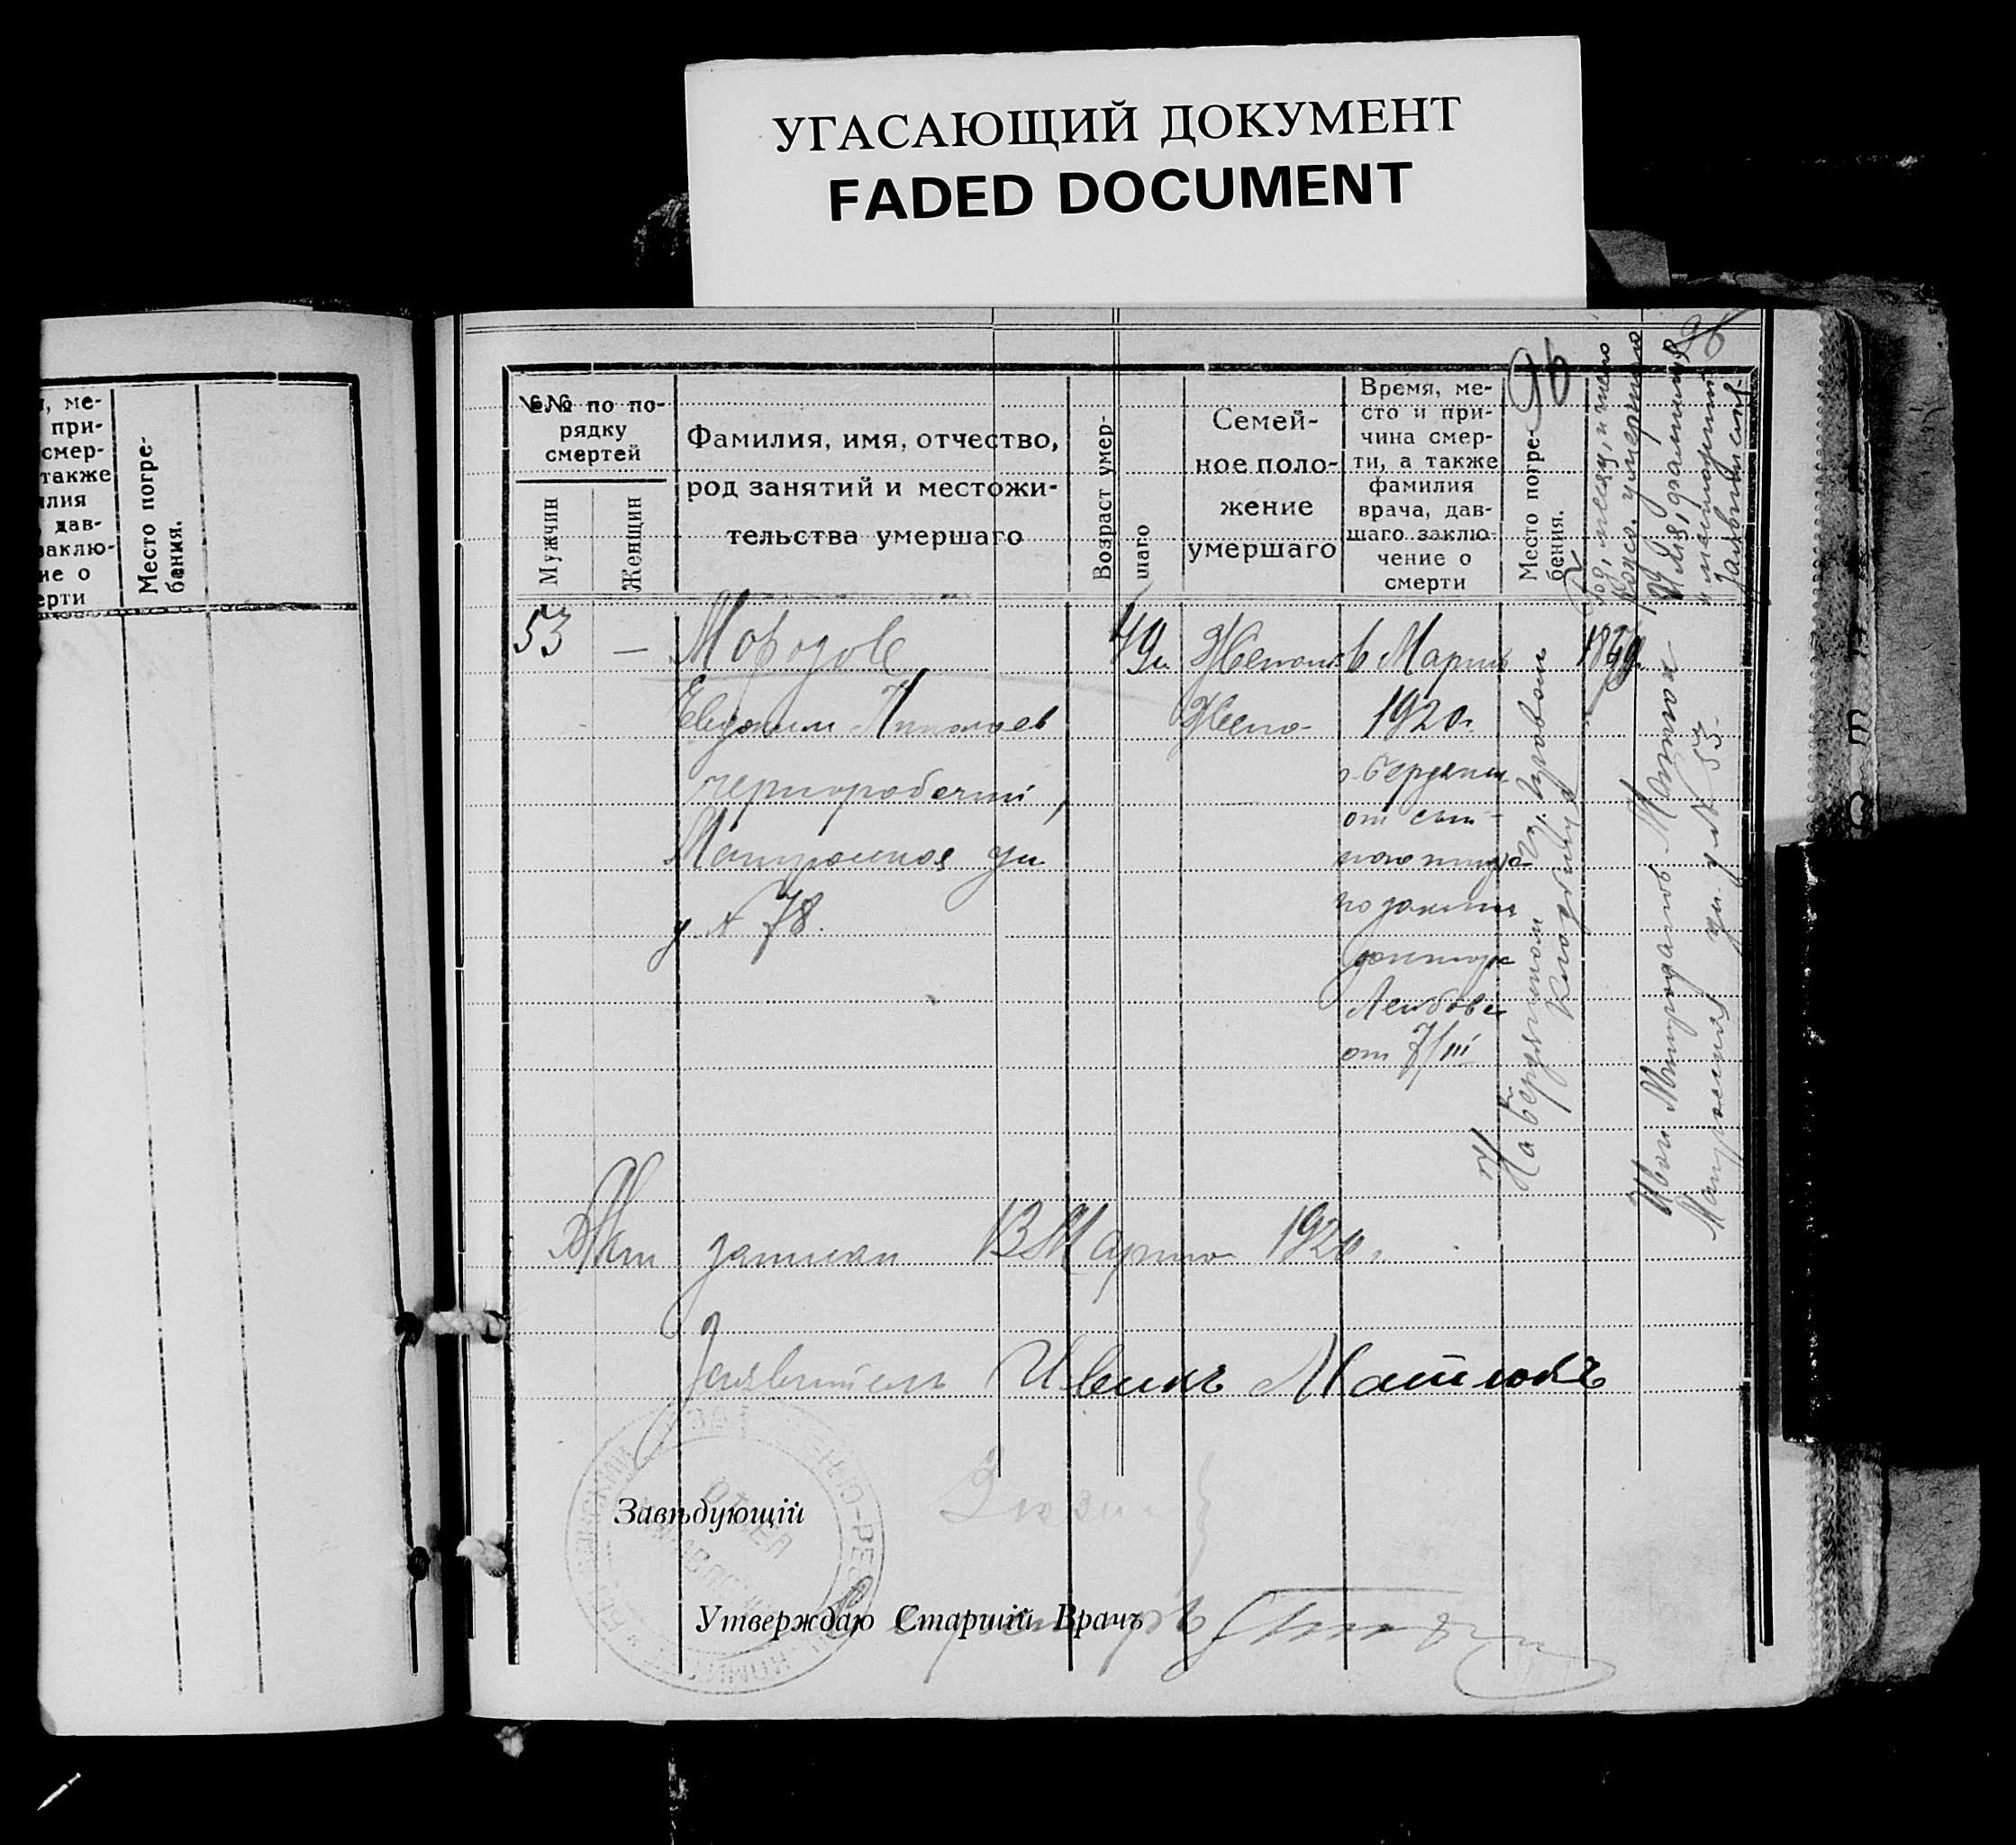 УГАСАЮЩИЙ ДОКУМЕНТ
FADED DOCUMENT
, ме-
при-
смер-
также
илия
дав-
заклю-
ие о
ерти
Место погре-
бения.
96
№№ по по-
рядку
смертей
Мужчин
Женщин
Фамилия, имя, отчество,
род занятий и местожи-
тельства умершаго
Возраст умер-
шаго
Семей-
ное поло-
жение
умершаго
Время, ме-
сто и при-
чина смер-
ти, а также
фамилия
врача, дав-
шаго заклю-
чение о
смерти
Место погре-
бения.
Год, месяц, и число
рожд. умершаго
Имя, фамилия
и местожит.
заявителя
53
—
Морозов
Евдоким Николаев
чернорабочий,
Матросская ул
д. № 78.
49л.
Женат
6 Марта
1920г.
г. Бердянск
от сып-
ного тифа
доктора
от 7/III
На Бердянском
кладбище
Иван Митрофанов Матюк
Матросская ул. д № 53
Акт записан 13 Марта 1920 г.
Заявитель Иван Матюкъ
Завѣдующій
Утверждаю Старшій Врачъ